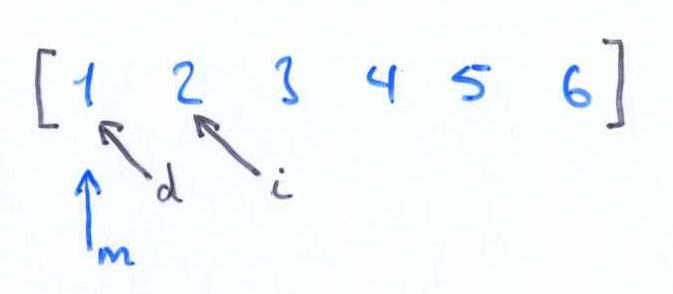 [ 1 2 3 4 5 6 ]
d i
m